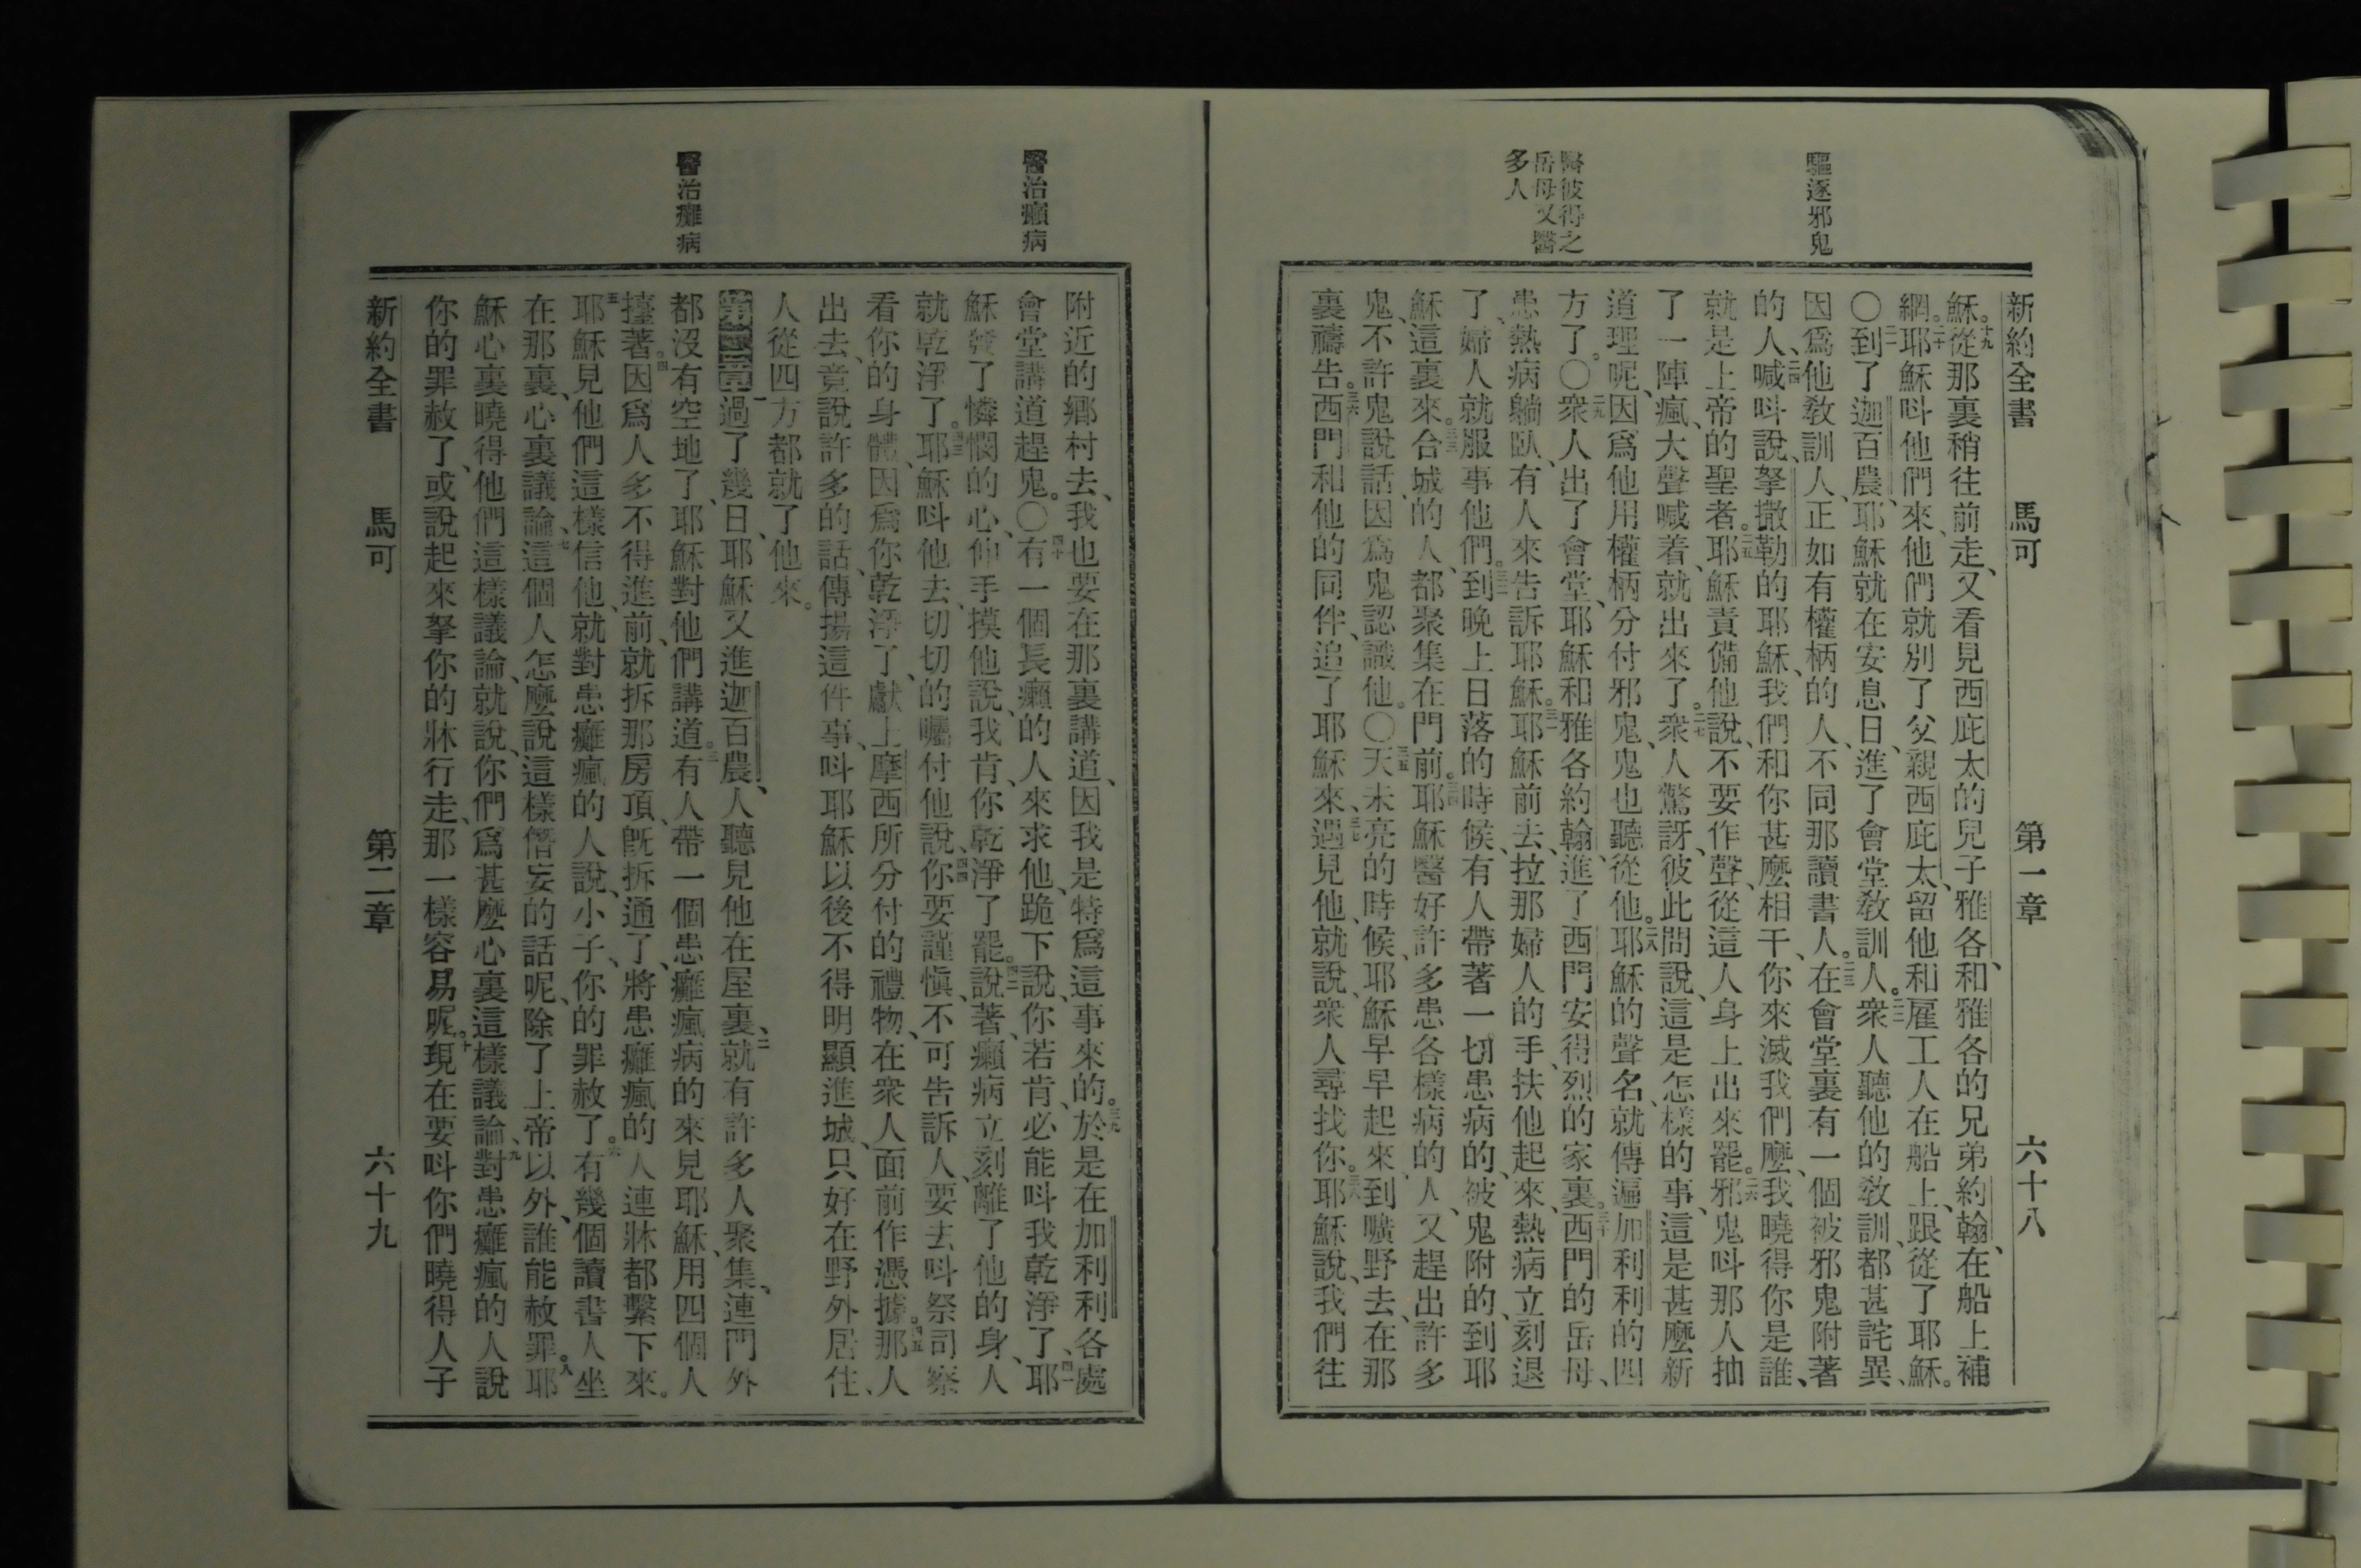 新約全書 馬可 第一章 六十八
驅逐邪鬼
醫彼得之
岳母又醫
多人
穌。十九從那裏稍往前走、又看見西庇太的兒子雅各、和雅各的兄弟約翰、在船上補
網。二十耶穌呌他們來、他們就別了父親西庇太、留他和雇工人在船上、跟從了耶穌。
〇二一到了迦百農、耶穌就在安息日、進了會堂教訓人。二二衆人聽他的教訓、都甚詫異、
因爲他教訓人、正如有權柄的人、不同那讀書人。二三在會堂裏有一個被邪鬼附著
的人、二四喊呌說、拏撒勒的耶穌、我們和你甚麼相干、你來滅我們麼、我曉得你是誰、
就是上帝的聖者。二五耶穌責備他說、不要作聲、從這人身上出來罷。二六邪鬼呌那人抽
了一陣瘋、大聲喊着、就出來了。二七衆人驚訝、彼此問說、這是怎樣的事、這是甚麼新
道理呢、因爲他用權柄分付邪鬼、鬼也聽從他。二八耶穌的聲名、就傳遍加利利的四
方了。〇二九衆人出了會堂、耶穌和雅各約翰、進了西門安得烈的家裏。三十西門的岳母、
患熱病躺臥、有人來告訴耶穌。三一耶穌前去、拉那婦人的手、扶他起來、熱病立刻退
了、婦人就服事他們。三二到晚上日落的時候、有人帶著一切患病的、被鬼附的、到耶
穌這裏來。三三合城的人、都聚集在門前。三四耶穌醫好許多患各樣病的人、又趕出許多
鬼、不許鬼說話、因爲鬼認識他。〇三五天未亮的時候、耶穌早早起來、到曠野去、在那
裏禱告。三六西門和他的同伴、追了耶穌來、三七遇見他、就說、衆人尋找你。三八耶穌說、我們往
醫治癩病
醫治癱病
附近的鄉村去、我也要在那裏講道、因我是特爲這事來的。三九於是在加利利各處
會堂講道趕鬼。〇四十有一個長癩的人來求他、跪下說、你若肯、必能呌我乾淨了、四一耶
穌發了憐憫的心、伸手摸他說、我肯、你乾淨了罷。四二說著、癩病立刻離了他的身、人
就乾淨了。四三耶穌呌他去、切切的囑付他說、四四你要謹愼、不可告訴人、要去呌祭司察
看你的身體、因爲你乾淨了、獻上摩西所分付的禮物、在衆人面前作憑據。四五那人
出去、竟說許多的話、傳揚這件事、呌耶穌以後不得明顯進城、只好在野外居住、
人從四方都就了他來。
第二章 一過了幾日、耶穌又進迦百農、人聽見他在屋裏、二就有許多人聚集、連門外
都沒有空地了、耶穌對他們講道。三有人帶一個患癱瘋病的來見耶穌、用四個人
擡著。四因爲人多不得進前、就拆那房頂、旣拆通了、將患癱瘋的人連牀都繫下來。
五耶穌見他們這樣信他、就對患癱瘋的人說、小子、你的罪赦了。六有幾個讀書人坐
在那裏、心裏議論、七這個人怎麼說這樣僭妄的話呢、除了上帝以外、誰能赦罪。八耶
穌心裏曉得他們這樣議論、就說、你們爲甚麼心裏這樣議論、九對患癱瘋的人說
你的罪赦了、或說起來拏你的牀行走、那一樣容易呢。十現在要呌你們曉得人子
新約全書 馬可 第二章 六十九